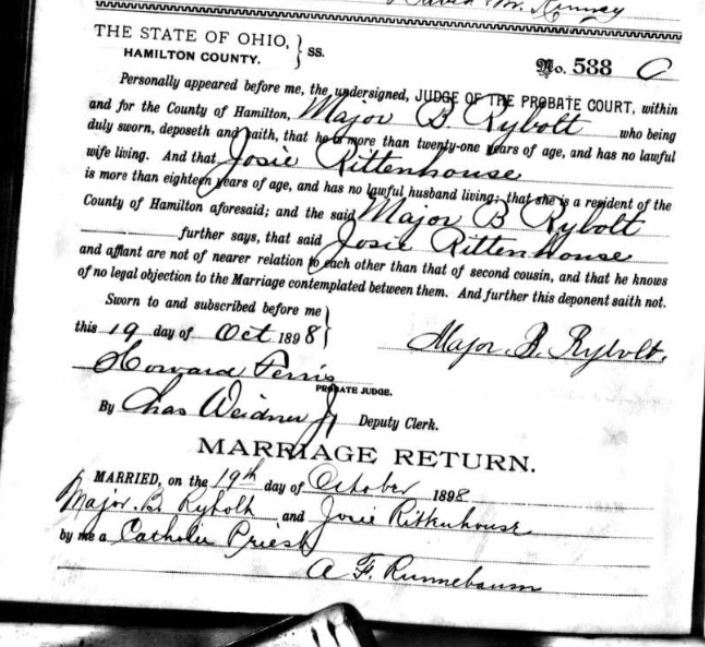 David M. Kenney
THE STATE OF OHIO,
HAMILTON COUNTY. } SS.
No. 538 C
Personally appeared before me, the undersigned, JUDGE OF THE PROBATE COURT, within
and for the County of Hamilton, Major B. Rybolt who being
duly sworn, deposeth and saith, that he is more than twenty-one years of age, and has no lawful
wife living. And that Josie Rittenhouse
is more than eighteen years of age, and has no lawful husband living; that she is a resident of the
County of Hamilton aforesaid; and the said Major B Rybolt
further says, that said Josie Rittenhouse
and affiant are not of nearer relation to each other than that of second cousin, and that he knows
of no legal objection to the Marriage contemplated between them. And further this deponent saith not.
Sworn to and subscribed before me
this 19 day of Oct 1898 } Major. B. Rybolt.
Howard Ferris
PROBATE JUDGE.
By Chas Weidner Jr Deputy Clerk.
MARRIAGE RETURN.
MARRIED, on the 19th day of October 1898
Major. B. Rybolt and Josie Rittenhouse
by me a Catholic Priest
A. F. Runnebaum